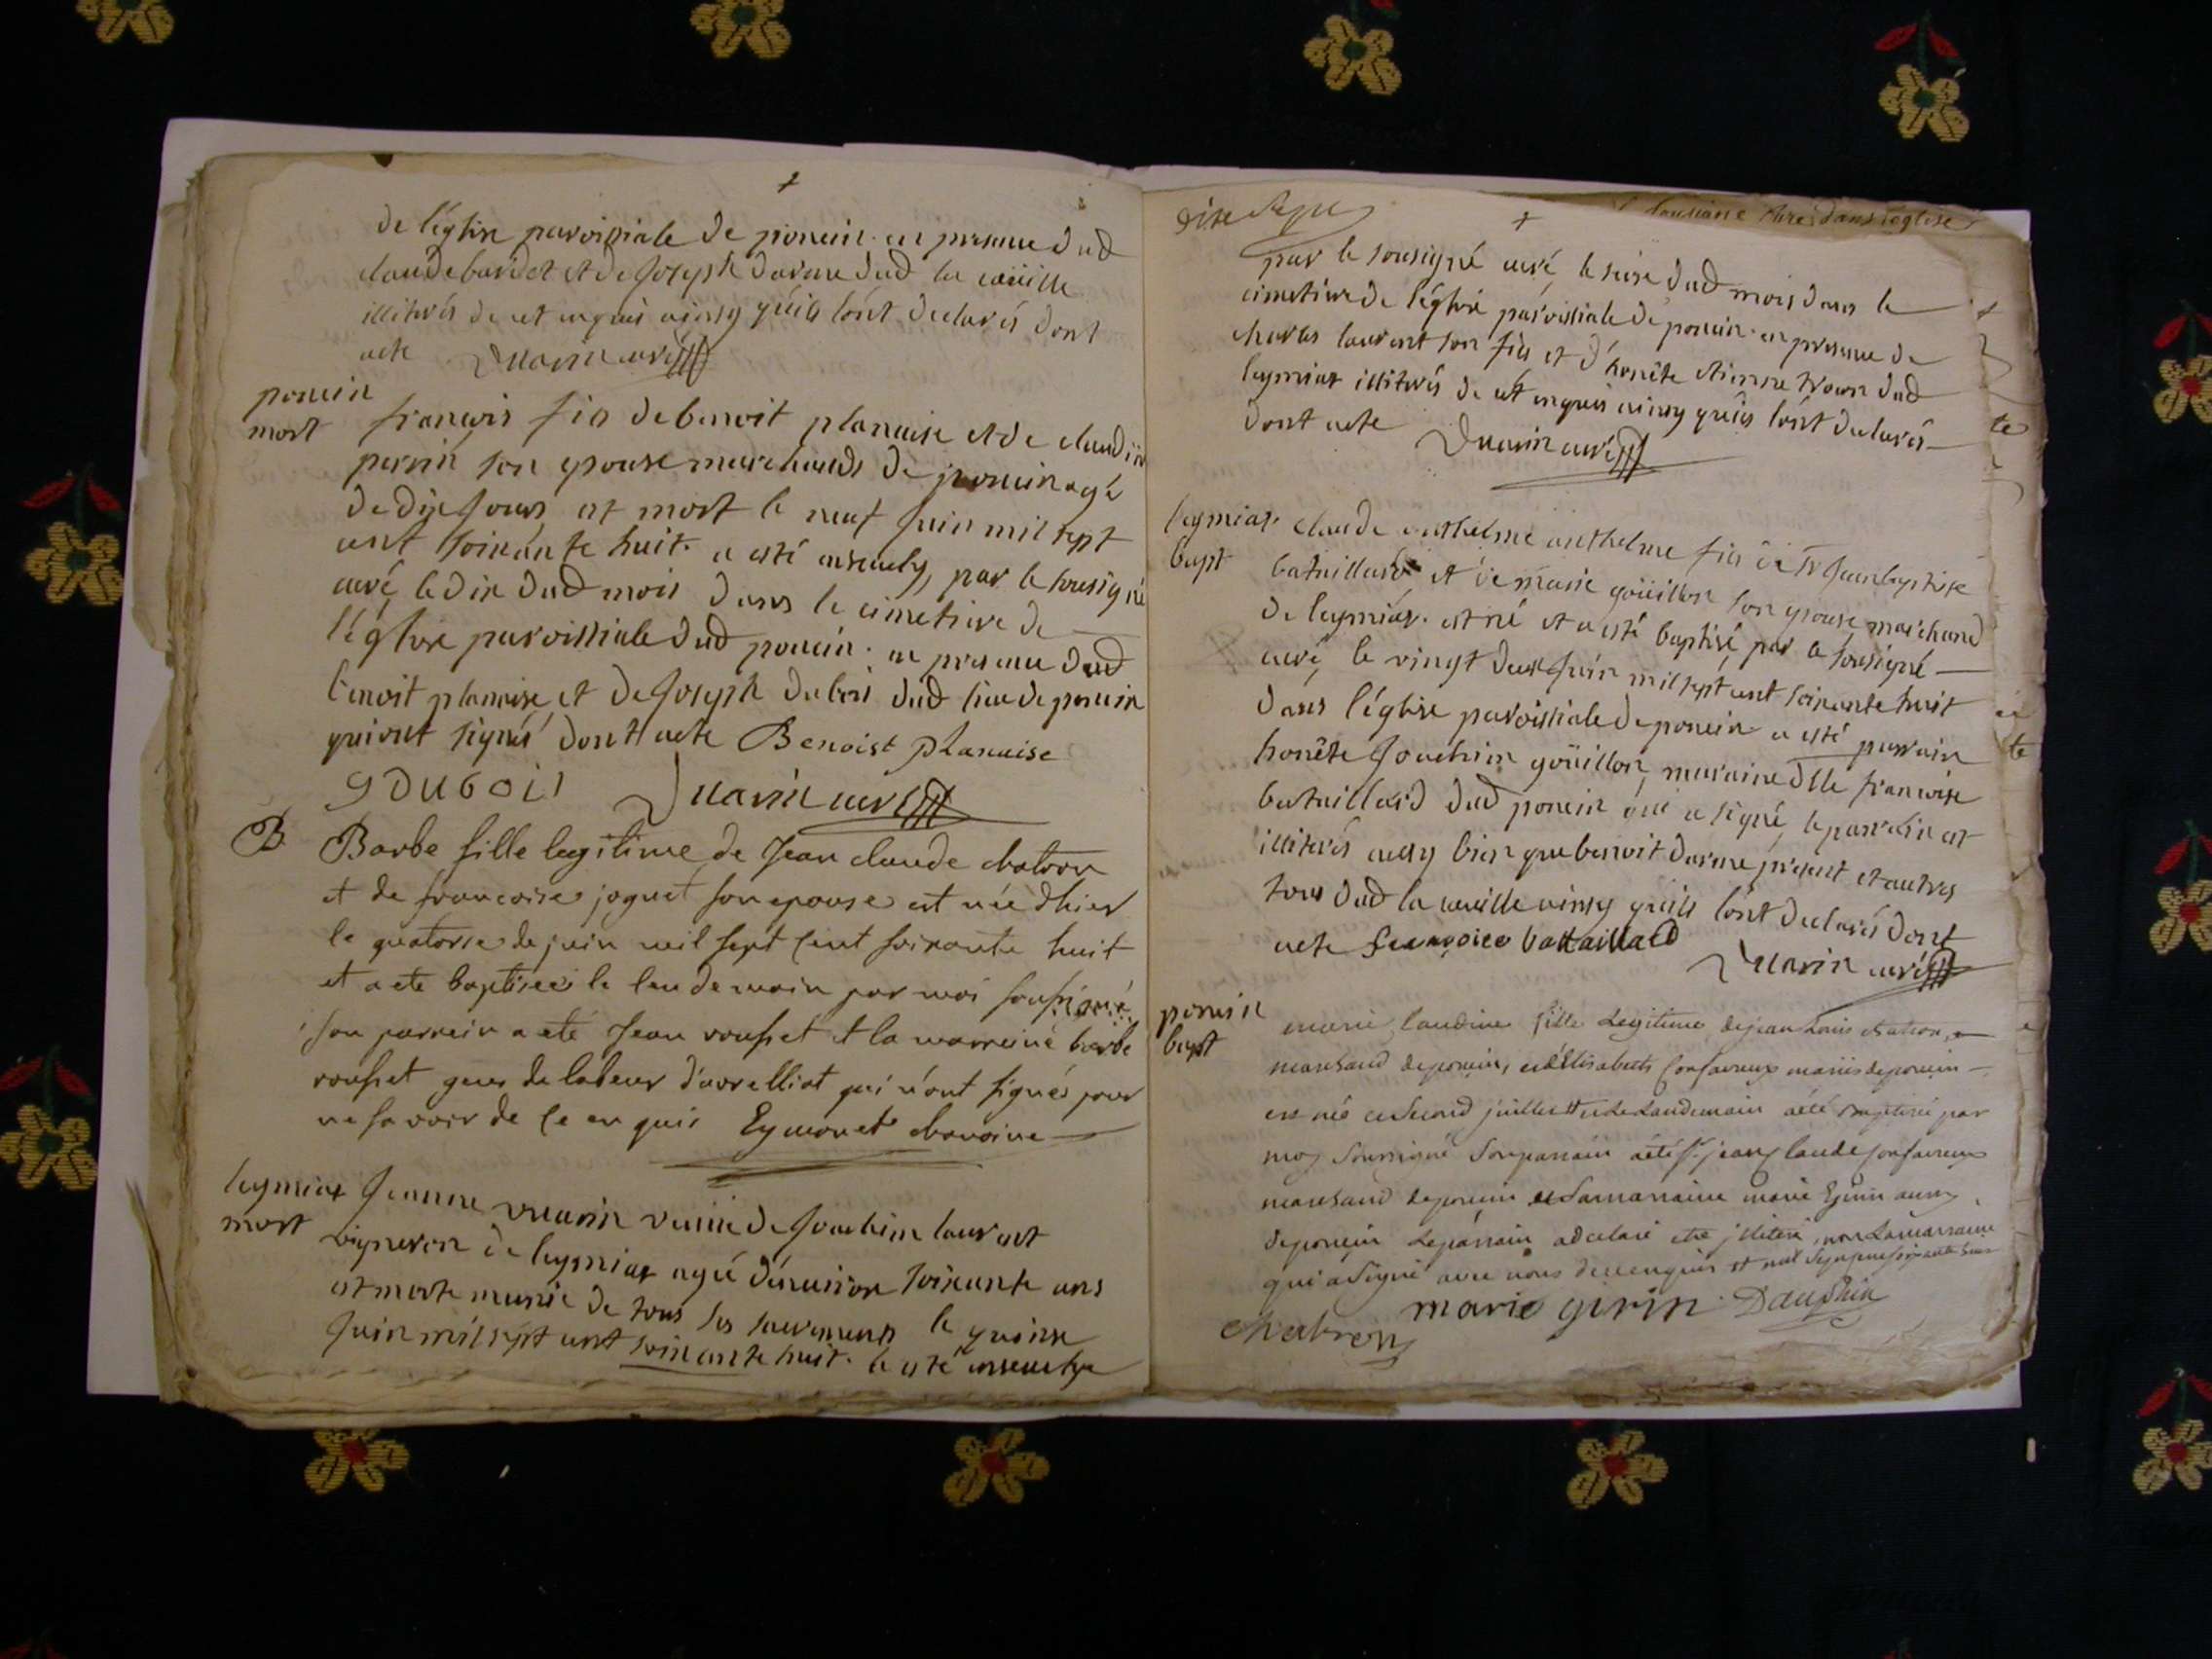 de l'église paroissiale de poncin. en presence dud
claude bardet et de Joseph darme dud la cueille
illiterés de ce enquis ainsy qu'ils l'ont declarés dont
acte curé
poncin
mort
francois fils de benoit planaise et de claudine
perrin son epouse marchands de poncin agé
de dix Jours est mort le neuf Juin mil sept
cent soixante huit. a esté ensevely par le sousigné
curé le dix dud mois dans le cimetiere de
l'église paroissiale dud poncin. en presence dud
benoit planaise et de Joseph dubois dud lieu de poncin
qui ont signés dont acte Benoist planaise
J DUBOIS curé
B
Barbe fille legitime de Jean claude chatron
et de francoise joguet son epouse est née d'hier
le quatorse de juin mil sept cent soixante huit
et a ete baptisee le lendemain par moi soussigné
son parrein a eté Jean rousset et la marreine barbe
rousset gens de labeur d'avrelliat qui n'ont signés pour
ne savoir de ce enquis Eymonet chanoine
leymiat
mort
Jeanne veuve de Joachim laurent
vigneron de leymiat agée d'environ soixante ans
est morte munie de tous ses sacrements le quinse
Juin mil sept cent soixante huit. a esté ensevelye
dix sept
dans l'église
par le sousigné curé le seise dud mois dans le
cimetiere de l'église paroissiale de poncin. en presence de
charles laurent son fils et d'honête etienne dud
leymiat illiterés de ce enquis ainsy qu'ils l'ont declarés
dont acte curé
leymiat
bapt
claude anthelme anthelme fils de sr Jean baptiste
bataillard et de marie goüillon son epouse marchand
de leymiat. est né et a esté baptisé par le sousigné
curé le vingt deux Juin mil sept cent soixante huit
dans l'église paroissiale de poncin a esté parrain
honête Joachim goüillon, maraine dlle francoise
bataillard dud poncin qui a signé, le parrain est
illiterés aussy bien que benoit darme présent et autres
tous dud la cueille ainsy qu'ils l'ont declarés dont
acte francoise battaillard
curé
poncin
bapt
marie claudine fille Legitime de jean Louis chatron
marchand de poncin, et d'Elisabeth confavreux mariés de poncin
est née ce second juillet et Le Landemain a été baptisé par
moy soussigné son parrain a été sr jean claude confavreux
marchand de poncin et sa marraine marie Gerin aussy
de poncin Le parrain a declaré etre illiteré, non La marraine
qui a signé avec nous de ce enquis et mil sept cent soixante huit
marie gerin Dauphin
chatron